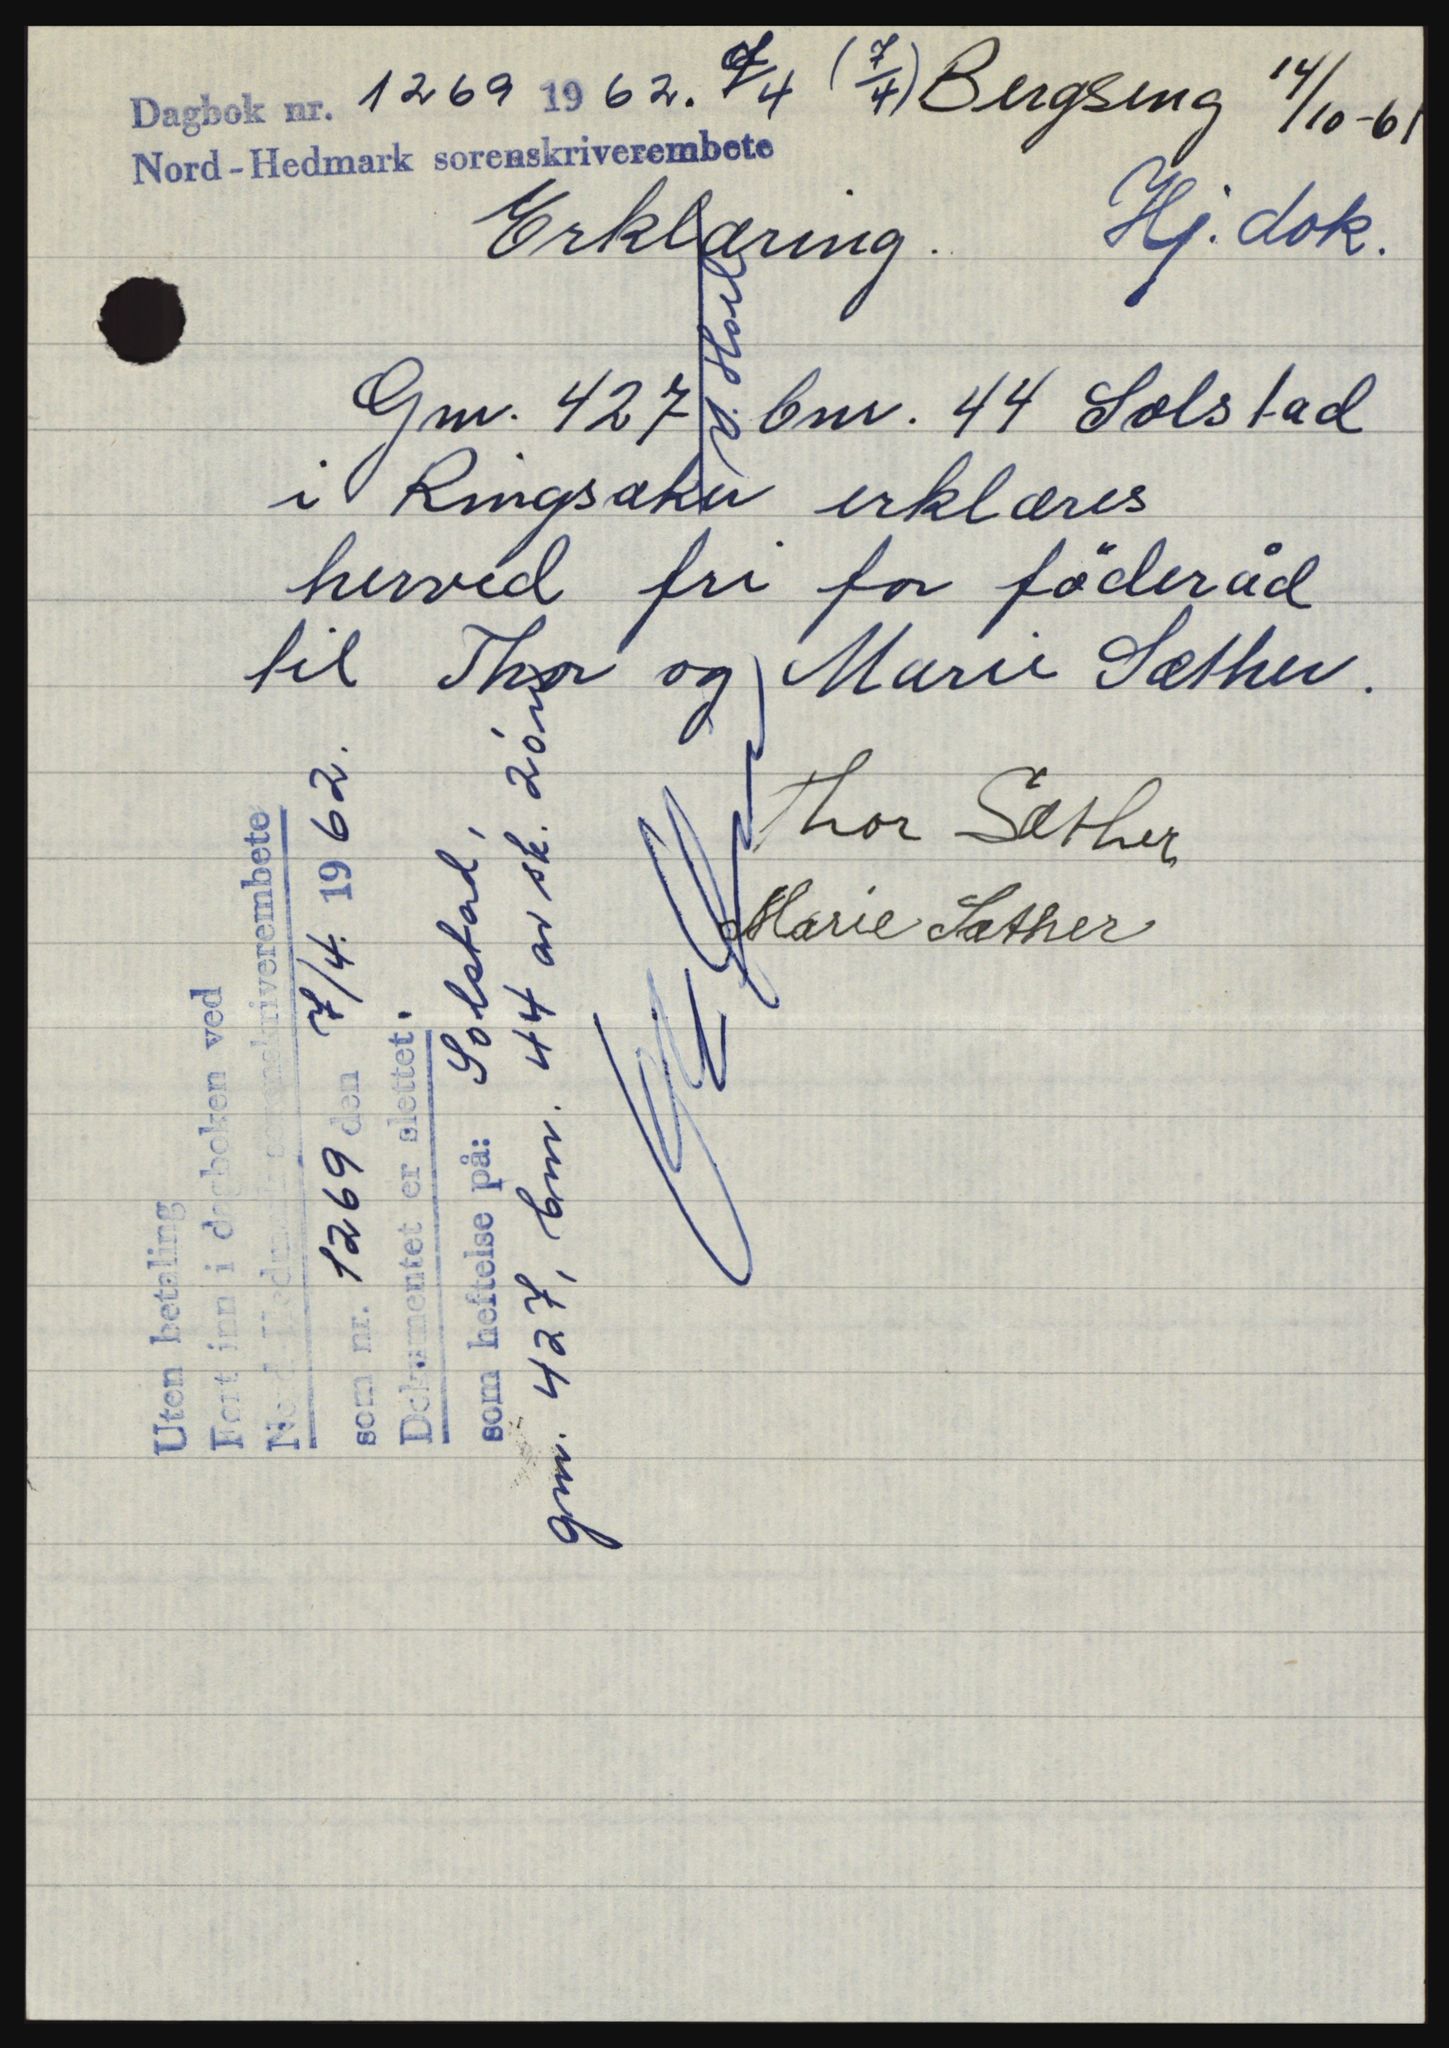 Dagbok nr. 1269 1962. 7/4 (7/4) Bergseng 14/10-61
Nord-Hedmark sorenskriverembete
Erklæring. Hj. dok.
Gnr. 427 bnr. 44 Solstad
i Ringsaker erklæres
herved fri for föderåd
til Thor og Marie Sæther.
Thor Sæther
Marie Sæther
Uten betaling
Ført inn i dagboken ved
Nord-Hedmark sorenskriverembete
som nr. 1269 den 7/4. 1962.
Dokumentet er slettet.
som heftelse på: Solstad,
gnr. 427, bnr. 44 av sk.